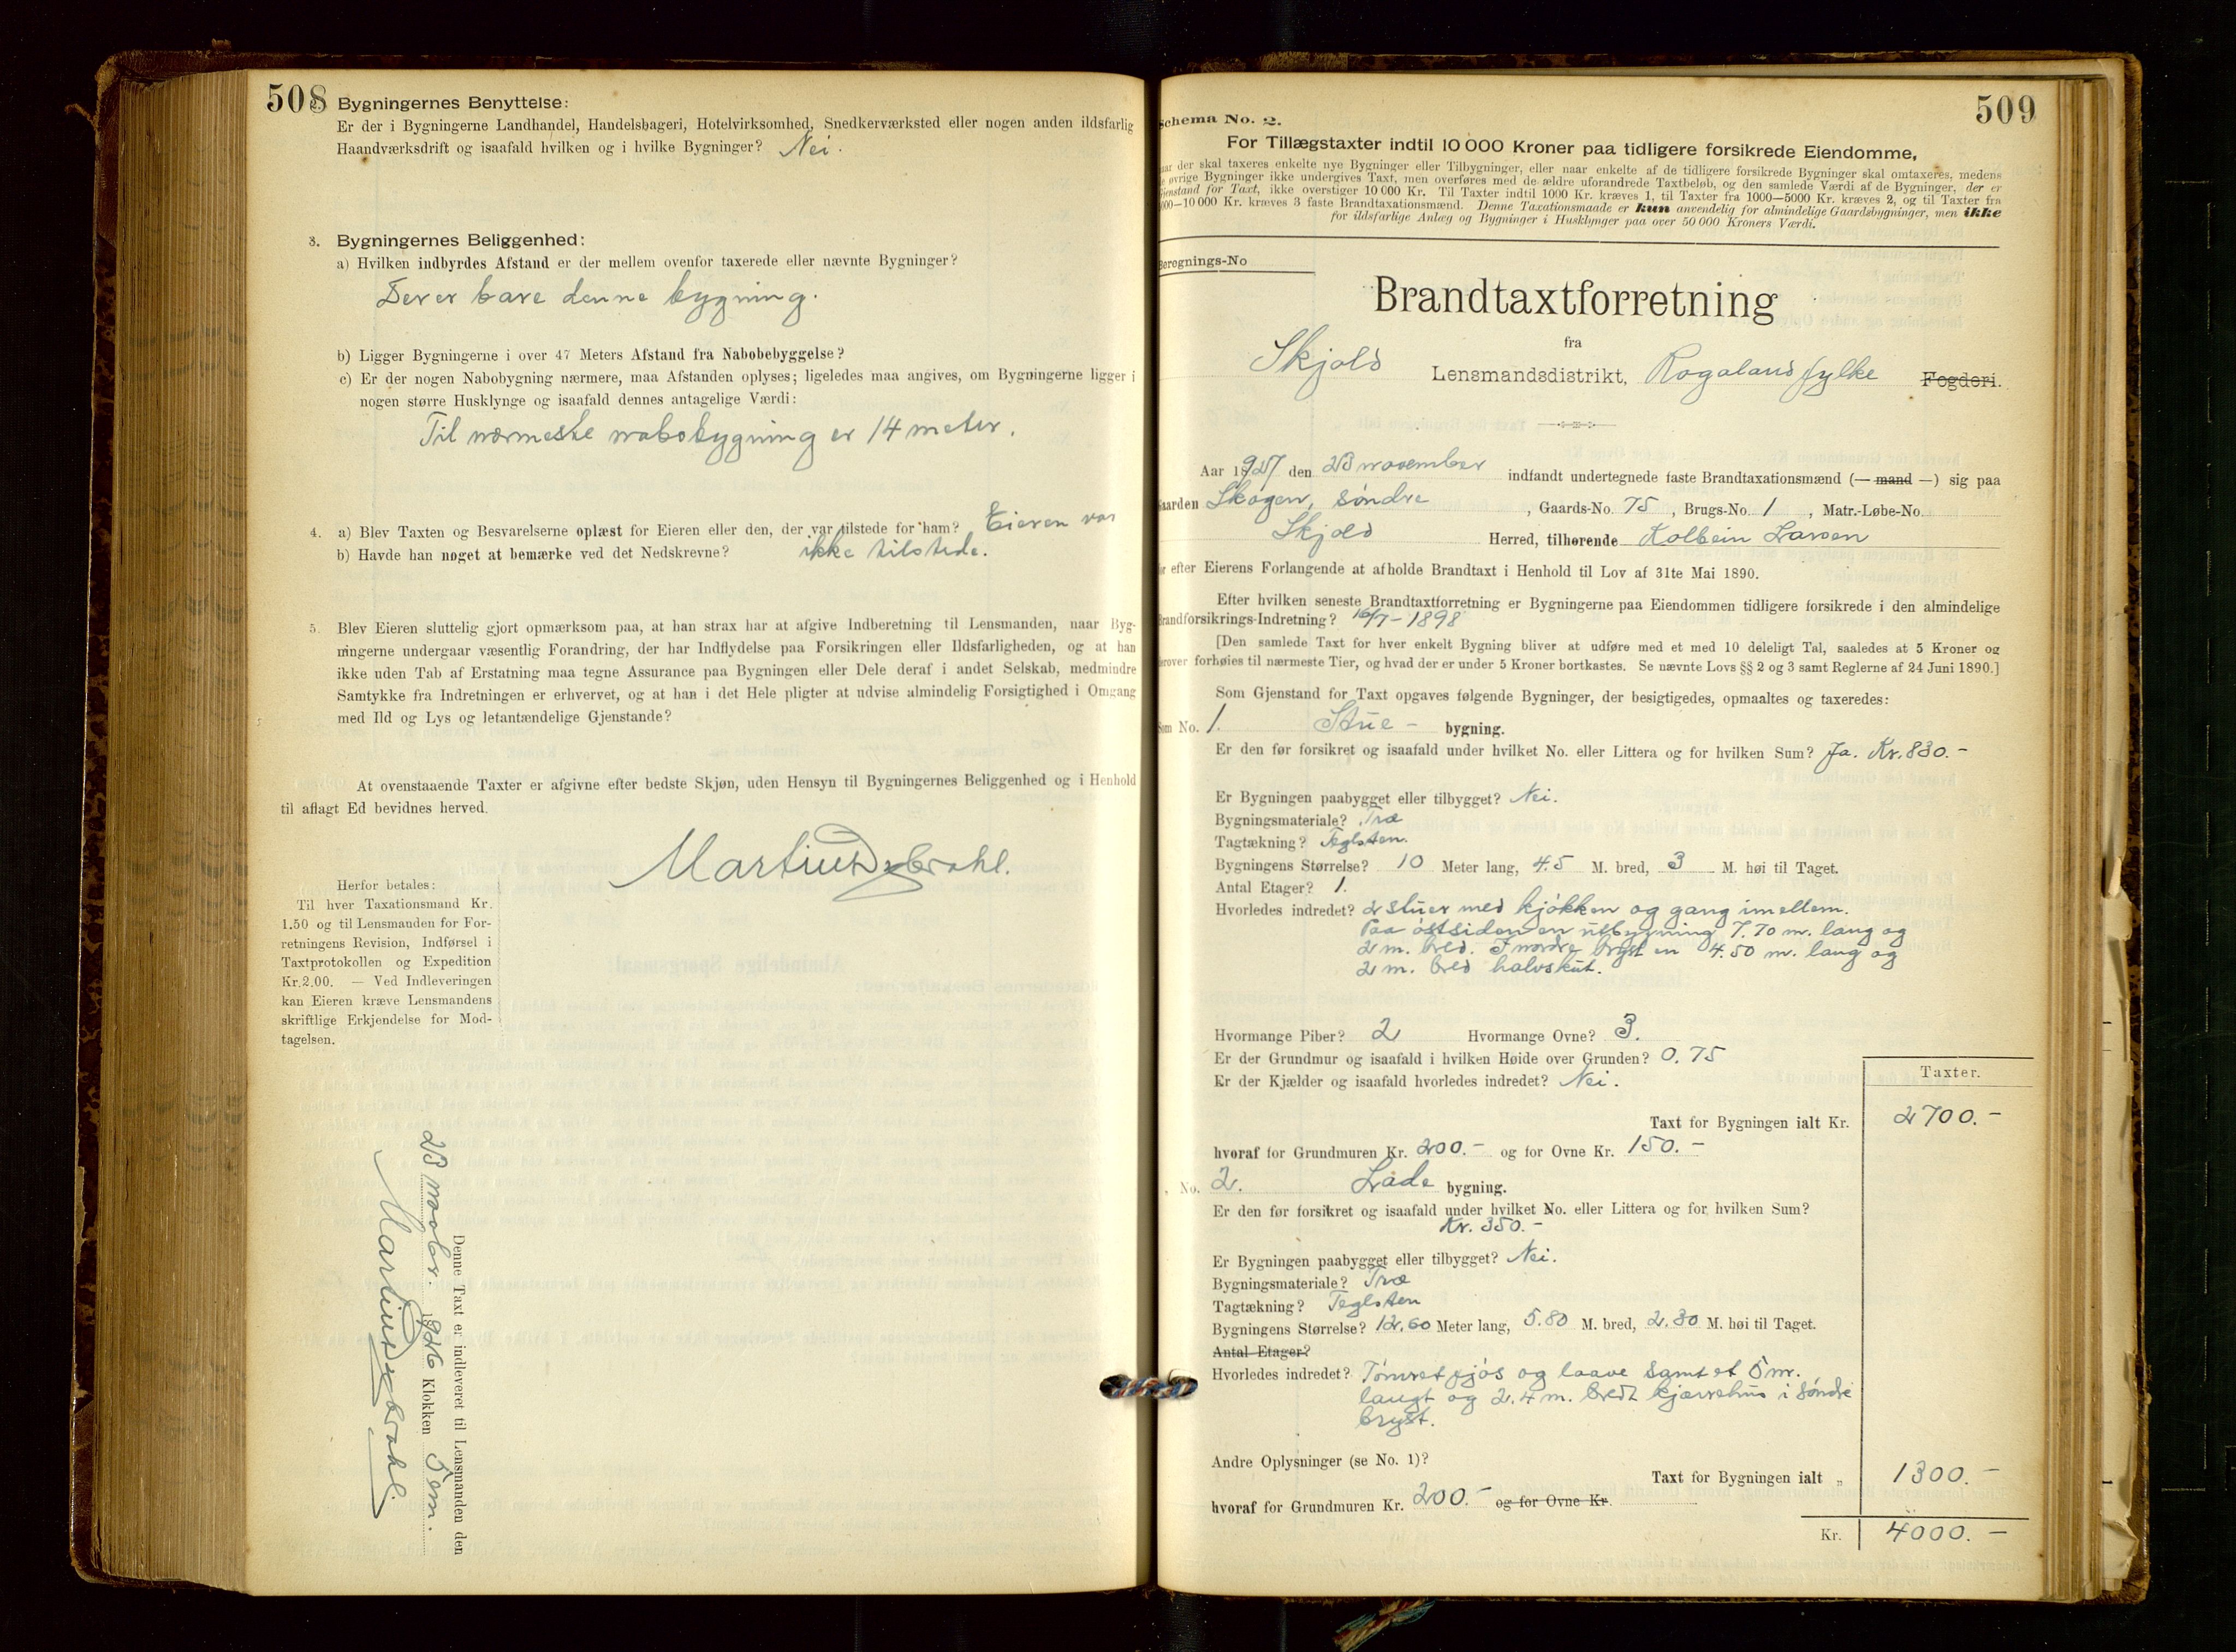 508
2. Bygningernes Benyttelse:
Er der i Bygningerne Landhandel, Handelsbageri, Hotelvirksomhed, Snedkerværksted eller nogen anden ildsfarlig
Haandværksdrift og isaafald hvilken og i hvilke Bygninger? Nei.
3. Bygningernes Beliggenhed:
a) Hvilken indbyrdes Afstand er der mellem ovenfor taxerede eller nævnte Bygninger?
Der er bare denne bygning.
b) Ligger Bygningerne i over 47 Meters Afstand fra Nabobebyggelse?
c) Er der nogen Nabobygning nærmere, maa Afstanden oplyses; ligeledes maa angives, om Bygningerne ligger i
nogen større Husklynge og isaafald dennes antagelige Værdi:
Til nærmeste nabobygning er 14 meter.
4. a) Blev Taxten og Besvarelserne oplæst for Eieren eller den, der var tilstede for ham? Eieren var
b) Havde han noget at bemærke ved det Nedskrevne? ikke tilstede.
5. Blev Eieren sluttelig gjort opmærksom paa, at han strax har at afgive Indberetning til Lensmanden, naar Byg-
ningerne undergaar væsentlig Forandring, der har Indflydelse paa Forsikringen eller Ildsfarligheden, og at han
ikke uden Tab af Erstatning maa tegne Assurance paa Bygningen eller Dele deraf i andet Selskab, medmindre
Samtykke fra Indretningen er erhvervet, og at han i det Hele pligter at udvise almindelig Forsigtighed i Omgang
med Ild og Lys og letantændelige Gjenstande?
At ovenstaaende Taxter er afgivne efter bedste Skjøn, uden Hensyn til Bygningernes Beliggenhed og i Henhold
til aflagt Ed bevidnes herved.
Martius
Herfor betales:
Til hver Taxationsmand Kr.
1.50 og til Lensmanden for For-
retningens Revision, Indførsel i
Taxtprotokollen og Expedition
Kr. 2.00. — Ved Indleveringen
kan Eieren kræve Lensmandens
skriftlige Erkjendelse for Mod-
tagelsen.
Denne Taxt er indleveret til Lensmanden den
23 novbr. 1926 Klokken 5 em.
Martius
509
Schema No. 2.
For Tillægstaxter indtil 10 000 Kroner paa tidligere forsikrede Eiendomme,
naar der skal taxeres enkelte nye Bygninger eller Tilbygninger, eller naar enkelte af de tidligere forsikrede Bygninger skal omtaxeres, medens
de øvrige Bygninger ikke undergives Taxt, men overføres med de ældre uforandrede Taxtbeløb, og den samlede Værdi af de Bygninger, der er
Gjenstand for Taxt, ikke overstiger 10 000 Kr. Til Taxter indtil 1000 Kr. kræves 1, til Taxter fra 1000—5000 Kr. kræves 2, og til Taxter fra
5000—10 000 Kr. kræves 3 faste Brandtaxationsmænd. Denne Taxationsmaade er kun anvendelig for almindelige Gaardsbygninger, men ikke
for ildsfarlige Anlæg og Bygninger i Husklynger paa over 50 000 Kroners Værdi.
Beregnings-No
Brandtaxtforretning
fra
Skjold Lensmandsdistrikt, Rogaland fylke Fogderi.
Aar 1927 den 23 november indfandt undertegnede faste Brandtaxationsmænd (— mand —) sig paa
Gaarden Skogen, søndre, Gaards-No. 75, Brugs-No. 1, Matr.-Løbe-No.
Skjold Herred, tilhørende Kolbein Larsen
for efter Eierens Forlangende at afholde Brandtaxt i Henhold til Lov af 31te Mai 1890.
Efter hvilken seneste Brandtaxtforretning er Bygningerne paa Eiendommen tidligere forsikrede i den almindelige
Brandforsikrings-Indretning? 16/7-1898
[Den samlede Taxt for hver enkelt Bygning bliver at udføre med et med 10 deleligt Tal, saaledes at 5 Kroner og
derover forhøies til nærmeste Tier, og hvad der er under 5 Kroner bortkastes. Se nævnte Lovs §§ 2 og 3 samt Reglerne af 24 Juni 1890.]
Som Gjenstand for Taxt opgaves følgende Bygninger, der besigtigedes, opmaaltes og taxeredes:
Som No. 1. Stue- bygning.
Er den før forsikret og isaafald under hvilket No. eller Littera og for hvilken Sum? Ja. Kr. 830.-
Er Bygningen paabygget eller tilbygget? Nei.
Bygningsmateriale? Træ
Tagtækning? Teglsten.
Bygningens Størrelse? 10 Meter lang, 4.5 M. bred, 3 M. høi til Taget.
Antal Etager? 1.
Hvorledes indredet? 2 stuer med kjøkken og gang imellem.
Paa østsiden en utbygning 7.70 m. lang og
2 m. bred. I nordre bryst en 4.50 m. lang og
2 m. bred halvskut.
Hvormange Piber? 2 Hvormange Ovne? 3.
Er der Grundmur og isaafald i hvilken Høide over Grunden? 0.75
Er der Kjælder og isaafald hvorledes indredet? Nei.
Taxter.
Taxt for Bygningen ialt Kr. 2700.-
hvoraf for Grundmuren Kr. 200.- og for Ovne Kr. 150.-
„ No. 2. Lade bygning.
Er den før forsikret og isaafald under hvilket No. eller Littera og for hvilken Sum?
Kr. 350.-
Er Bygningen paabygget eller tilbygget? Nei.
Bygningsmateriale? Træ
Tagtækning? Teglsten
Bygningens Størrelse? 12.60 Meter lang, 5.80 M. bred, 2.30 M. høi til Taget.
Antal Etager?
Hvorledes indredet? Tømret fjøs og laave samt et 5 m.
langt og 2.4 m. bredt kjærrehus i søndre
bryst.
Andre Oplysninger (se No. 1)?
Taxt for Bygningen ialt „ 1300.-
hvoraf for Grundmuren Kr. 200.- og for Ovne Kr.
Kr. 4000.-